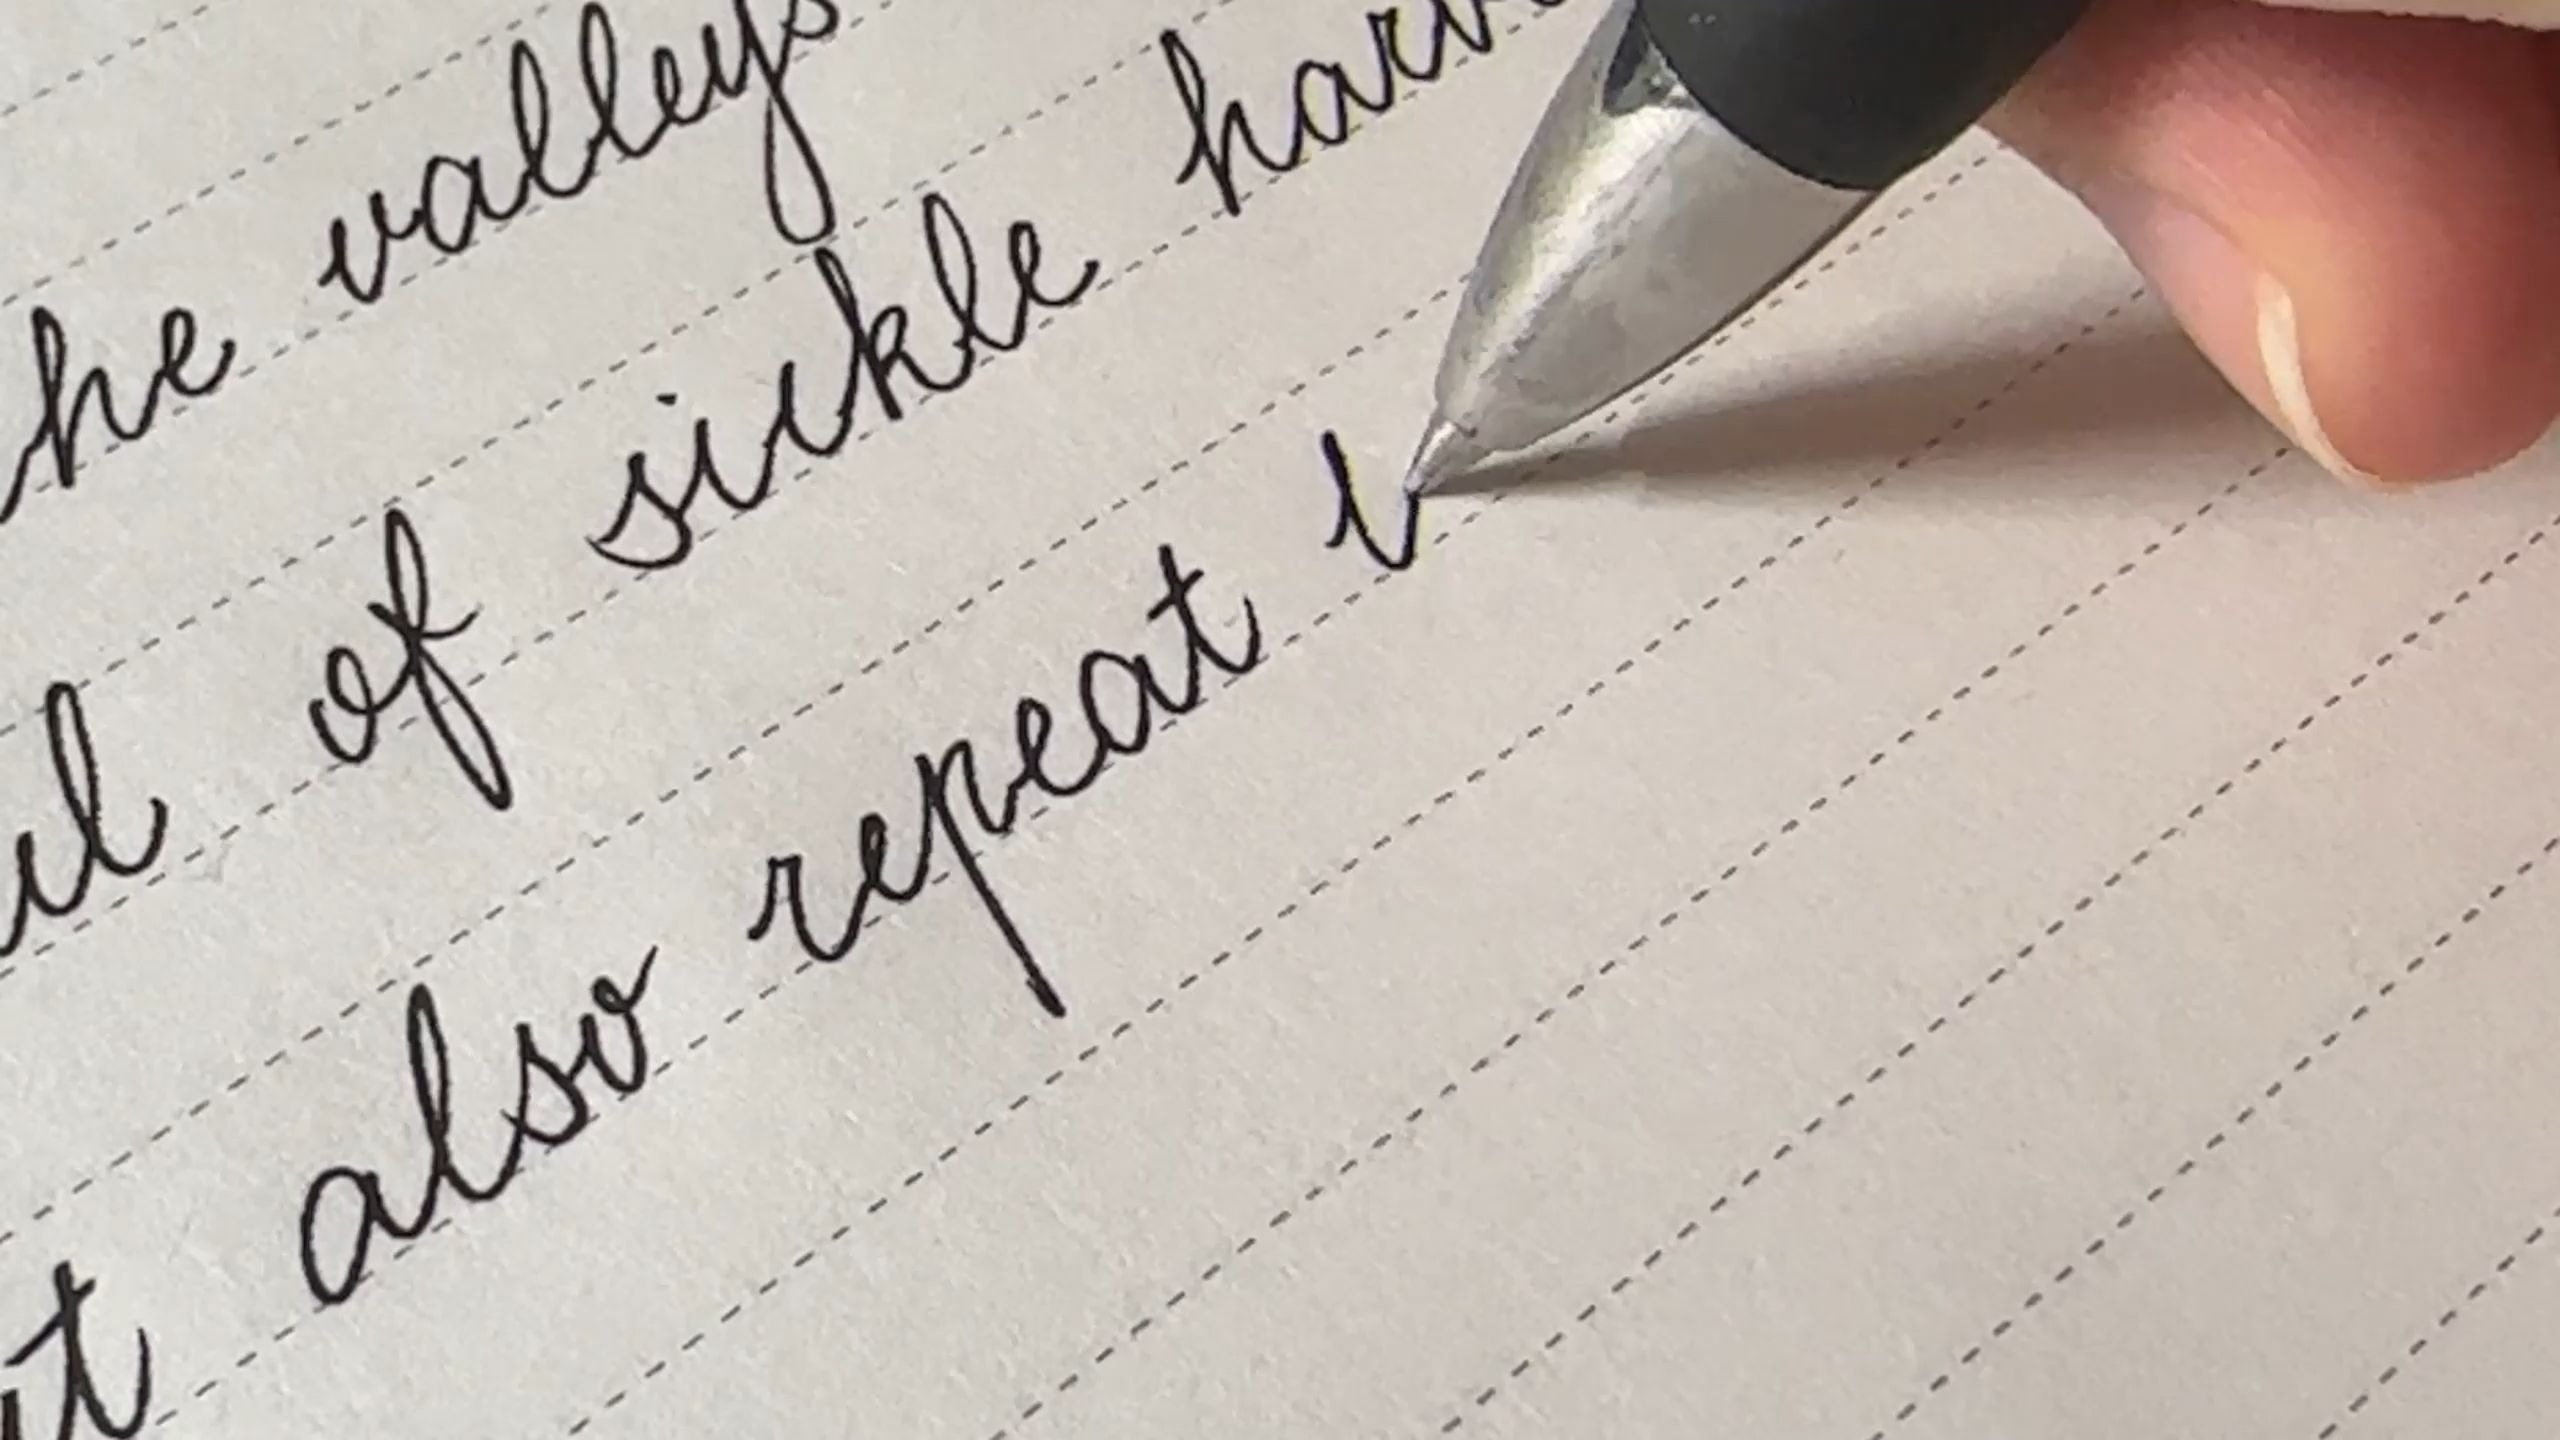 he valleys
ul of sickle harv
it also repeat